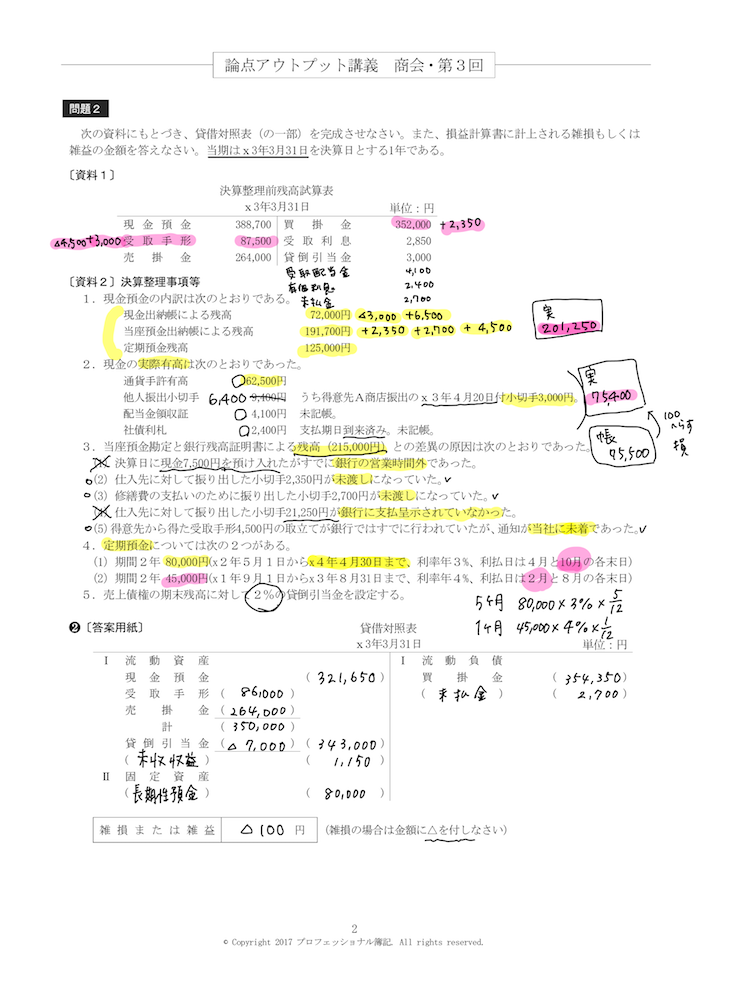 論点アウトプット講義　商会・第３回
問題２
次の資料にもとづき、貸借対照表（の一部）を完成させなさい。また、損益計算書に計上される雑損もしくは
雑益の金額を答えなさい。当期はｘ3年3月31日を決算日とする1年である。
〔資料１〕
決算整理前残高試算表
ｘ3年3月31日　単位：円
現金預金 388,700 買掛金 352,000 +2,350
△4,500+3,000 受取手形 87,500 受取利息 2,850
売掛金 264,000 貸倒引当金 3,000
受取配当金 4,100
有価利息 2,400
未払金 2,700
〔資料２〕決算整理事項等
１．現金預金の内訳は次のとおりである。
現金出納帳による残高 72,000円 △3,000 +6,500
当座預金出納帳による残高 191,700円 +2,350 +2,700 +4,500
定期預金残高 125,000円
実
201,250
２．現金の実際有高は次のとおりであった。
通貨手許有高 62,500円
他人振出小切手 6,400 9,400円 うち得意先Ａ商店振出のｘ３年４月20日付小切手3,000円。
配当金領収証 4,100円 未記帳。
社債利札 2,400円 支払期日到来済み。未記帳。
実
75,400
帳
75,500
100
へらす
損
３．当座預金勘定と銀行残高証明書による残高（215,000円）との差異の原因は次のとおりであった。
(1) 決算日に現金7,500円を預け入れたがすでに銀行の営業時間外であった。
(2) 仕入先に対して振り出した小切手2,350円が未渡しになっていた。
(3) 修繕費の支払いのために振り出した小切手2,700円が未渡しになっていた。
(4) 仕入先に対して振り出した小切手21,250円が銀行に支払呈示されていなかった。
(5) 得意先から得た受取手形4,500円の取立てが銀行ではすでに行われていたが、通知が当社に未着であった。
４．定期預金については次の２つがある。
(1) 期間２年 80,000円(ｘ２年５月１日からｘ４年４月30日まで、利率年３%、利払日は４月と10月の各末日)
(2) 期間２年 45,000円(ｘ１年９月１日からｘ３年８月31日まで、利率年４%、利払日は２月と８月の各末日)
５．売上債権の期末残高に対して２％の貸倒引当金を設定する。
5ヶ月 80,000×3%×5/12
1ヶ月 45,000×4%×1/12
❷〔答案用紙〕　貸借対照表
ｘ3年3月31日　単位：円
Ⅰ 流動資産 Ⅰ 流動負債
現金預金 (321,650) 買掛金 (354,350)
受取手形 (86,000) (未払金) (2,700)
売掛金 (264,000)
計 (350,000)
貸倒引当金 (△7,000) (343,000)
(未収収益) (1,150)
Ⅱ 固定資産
(長期性預金) (80,000)
雑損または雑益 △100 円 （雑損の場合は金額に△を付しなさい）
2
© Copyright 2017 プロフェッショナル簿記. All rights reserved.